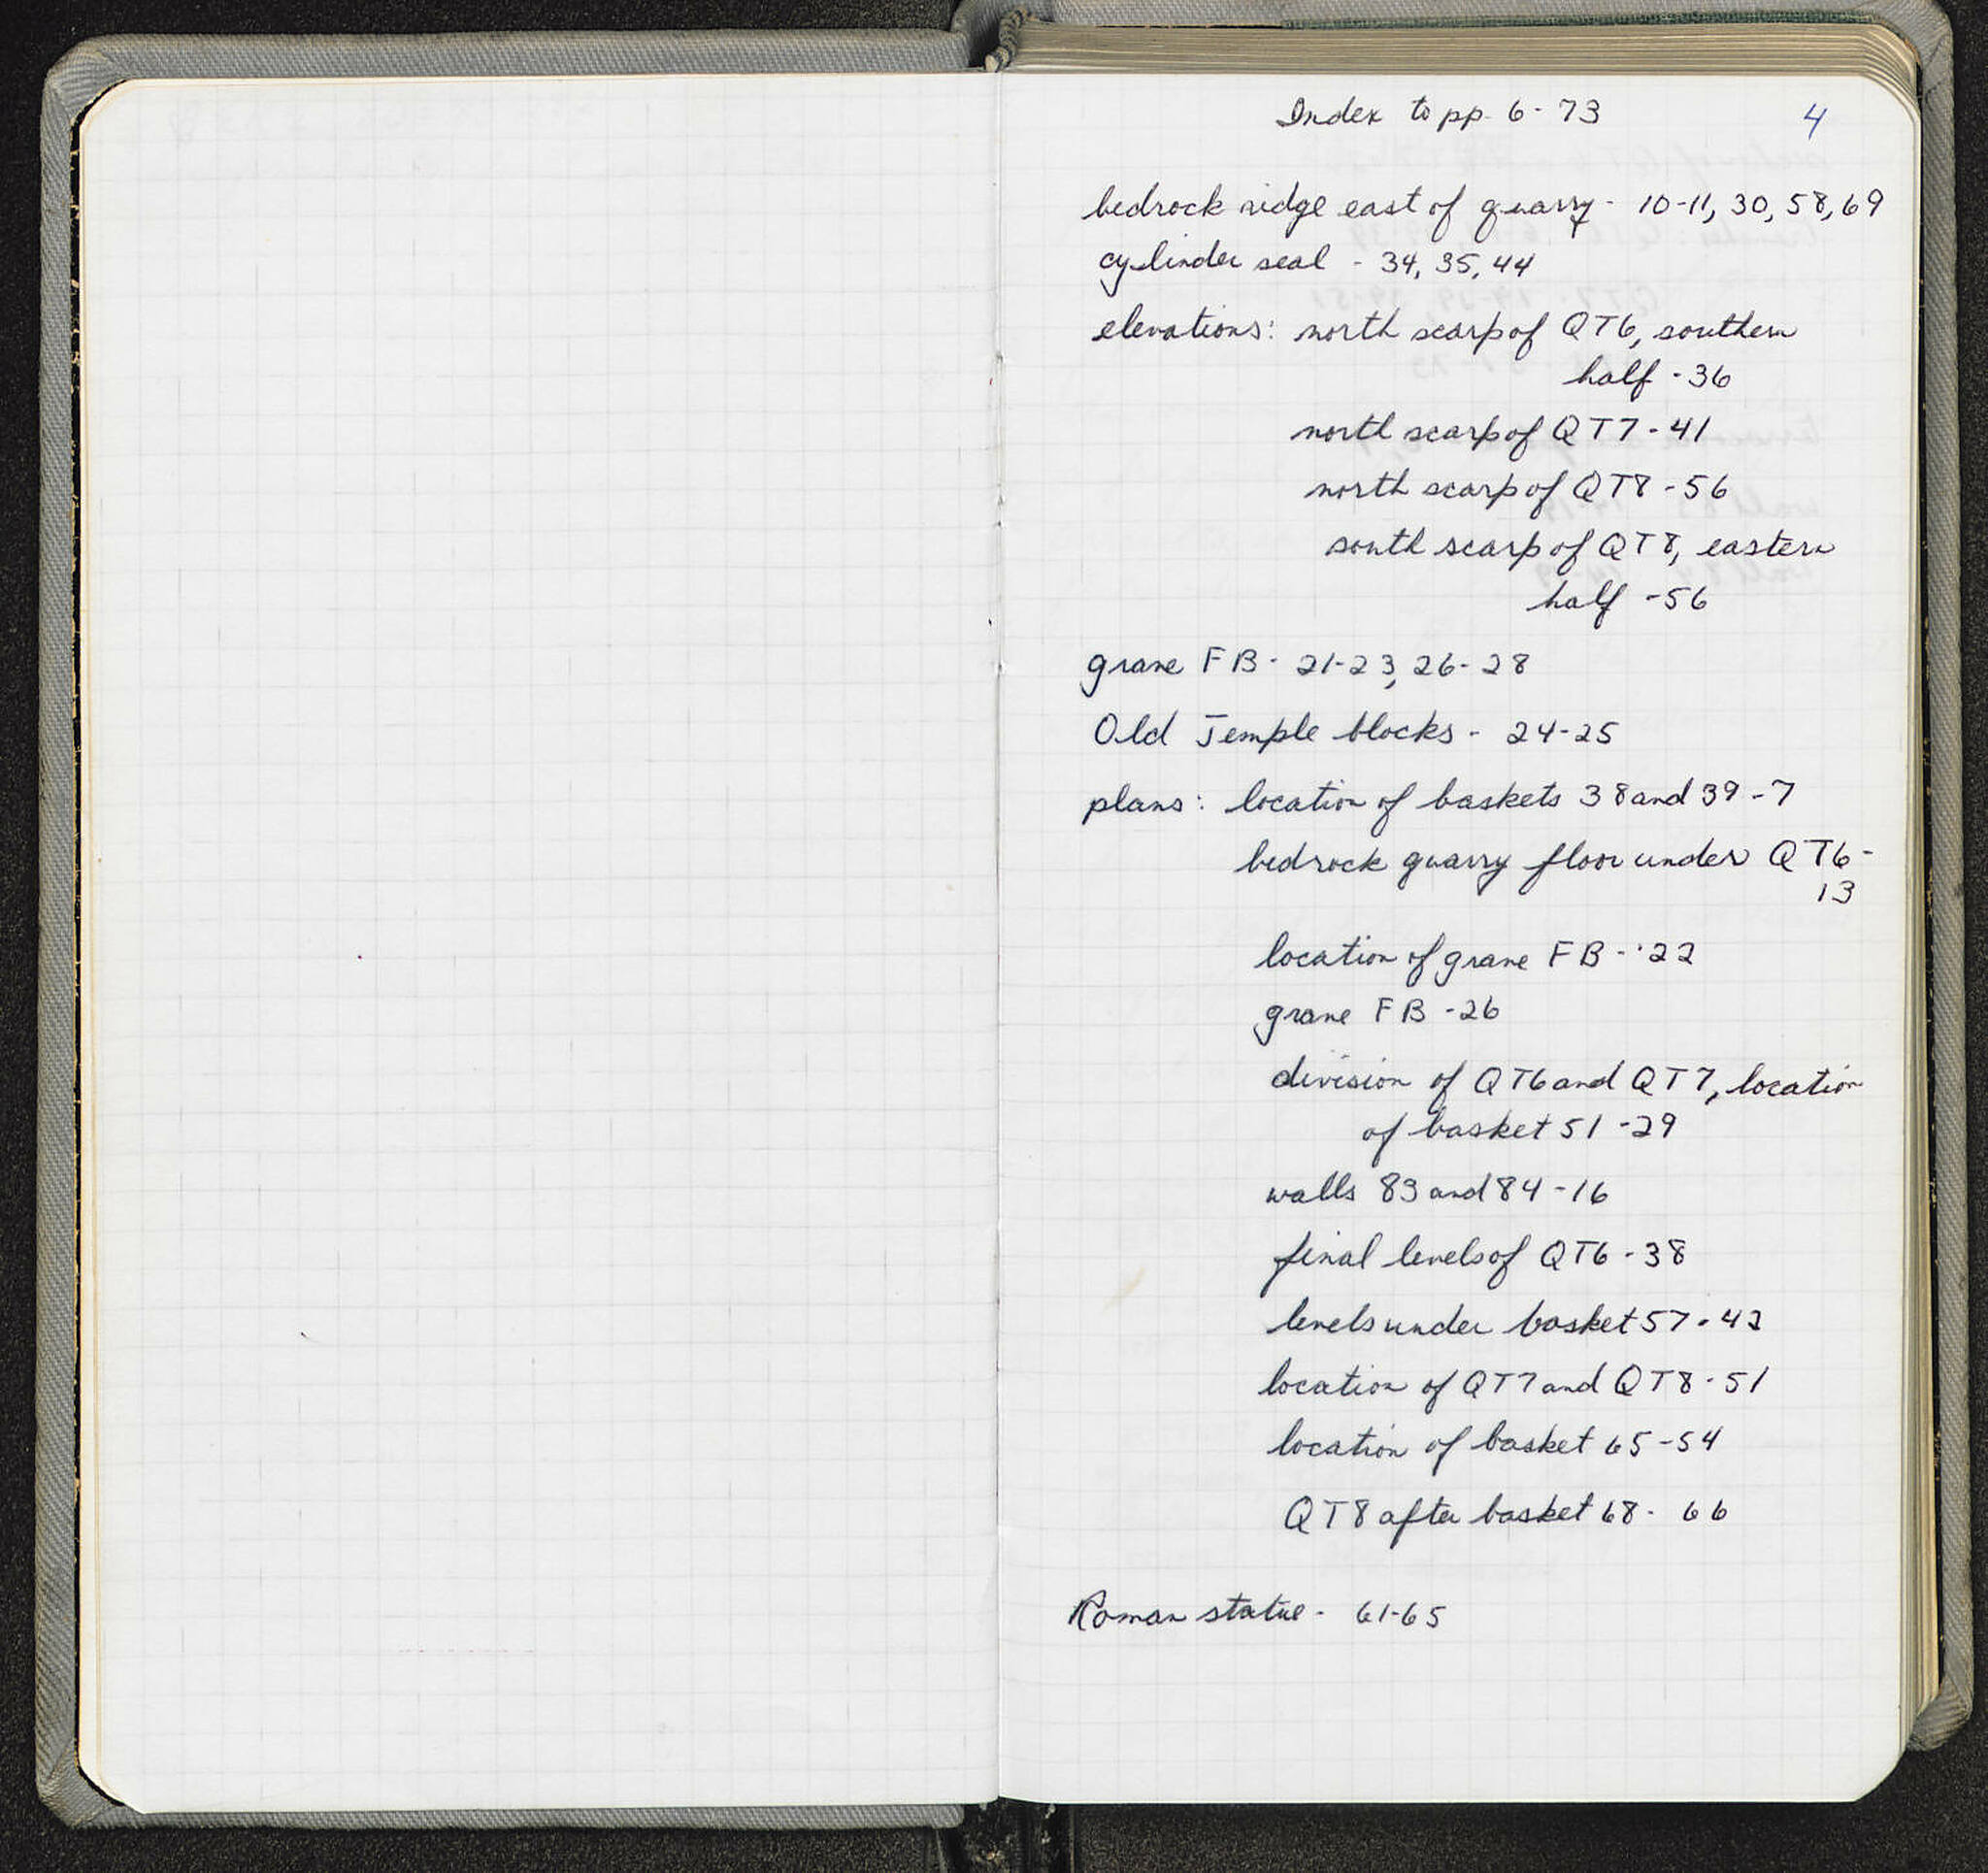 Index to pp. 6-73
4
bedrock ridge east of quarry - 10-11, 30, 58, 69
cylinder seal - 34, 35, 44
elevations: north scarp of QT6, southern
half - 36
north scarp of QT7 - 41
north scarp of QT8 - 56
south scarp of QT8, eastern
half - 56
grave FB - 21-23, 26-28
Old Temple blocks - 24-25
plans: location of baskets 38 and 39 - 7
bedrock quarry floor under QT6 -
13
location of grave FB - 22
grave FB - 26
division of QT6 and QT7, location
of basket 51 - 29
walls 83 and 84 - 16
final levels of QT6 - 38
levels under basket 57 - 42
location of QT7 and QT8 - 51
location of basket 65 - 54
QT8 after basket 68 - 66
Roman statue - 61-65